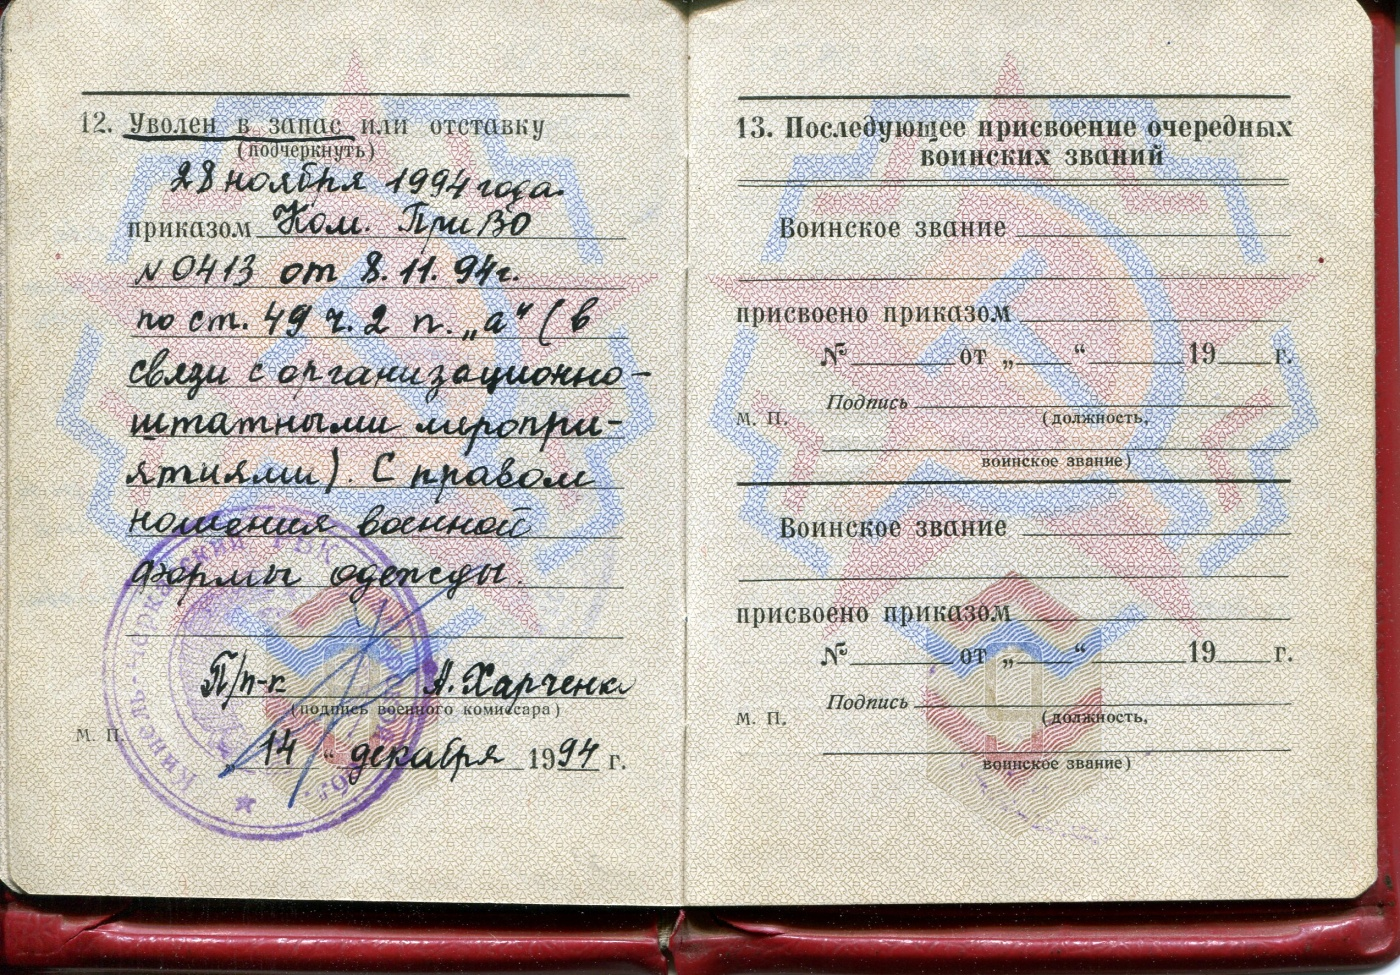 12. Уволен в запас или отставку
(подчеркнуть)
28 ноября 1994 года.
приказом Ком. ПриВО
№ 0413 от 8.11.94г.
по ст. 49 ч. 2 п. „а“ (в
связи с организационно-
штатными меропри-
ятиями). С правом
ношения военной
формы одежды.
П/п-к А. Харченко
(подпись военного комиссара)
М. П.
„14“ декабря 1994 г.
Кинель-Черкасский РВК
обл.
13. Последующее присвоение очередных
воинских званий
Воинское звание
присвоено приказом
№ от „ “ 19 г.
Подпись
М. П. (должность,
воинское звание)
Воинское звание
присвоено приказом
№ от „ “ 19 г.
Подпись
М. П. (должность,
воинское звание)